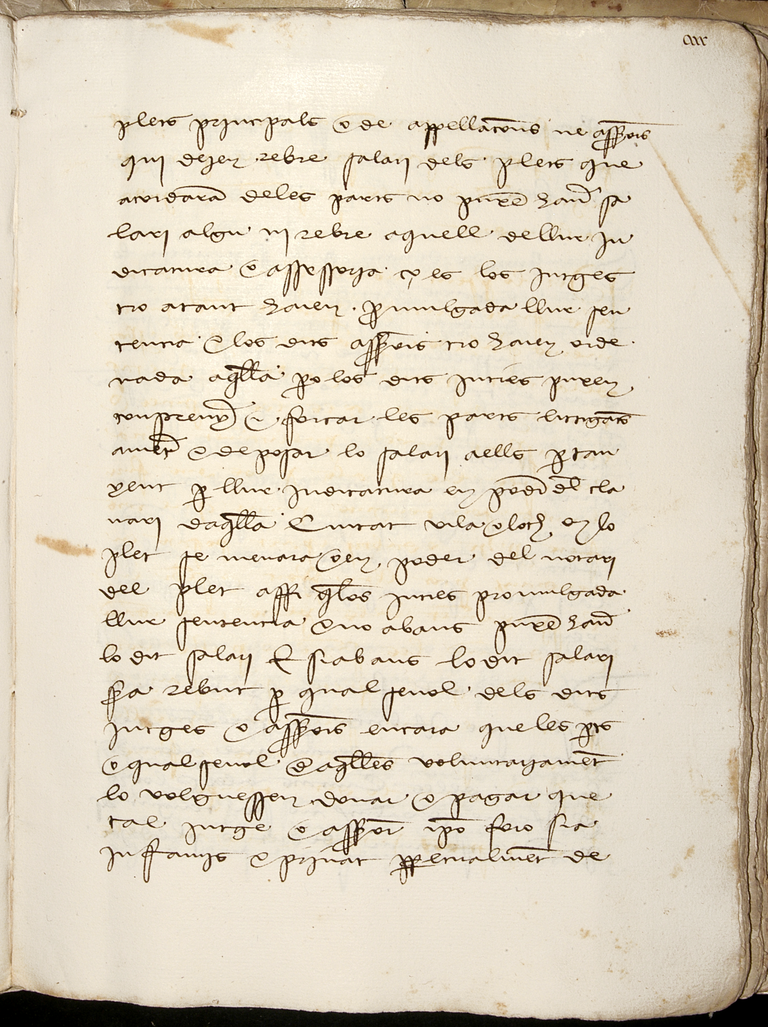 cxx
plets principals o de appellacons ne assessors
qui dejen rebre salari dels plets que
acordara deles parts no puxen hauer sa
lari algu ni rebre aquell de llur Ju
dicatura o assessoria si es los Jutges
tro atant hajen promulgada llur sen
tencia e los dits assessors tro hajen orde
nada aqlla pero los dits Jutges puxen
conprenyer e forçar les parts litigats
metre e deposar lo salari aells pertan
yent per llur Judicatura en poder del cla
uari daqlla Ciutat vila o loch on lo
plet se menara o en poder del notari
del plet assi qlos Jutges promulgada
llur sentencia e no abans puxen hauer
lo dit salari E si abans lo dit salari
sera rebut per qualseuol dels dits
Jutges o assessors encara que les pts
o qualseuol de aqlles voluntariament
lo volguessen donar o pagar que
tal Jutge o assessor ipso foro sia
Infamis e priuat perpetualment de